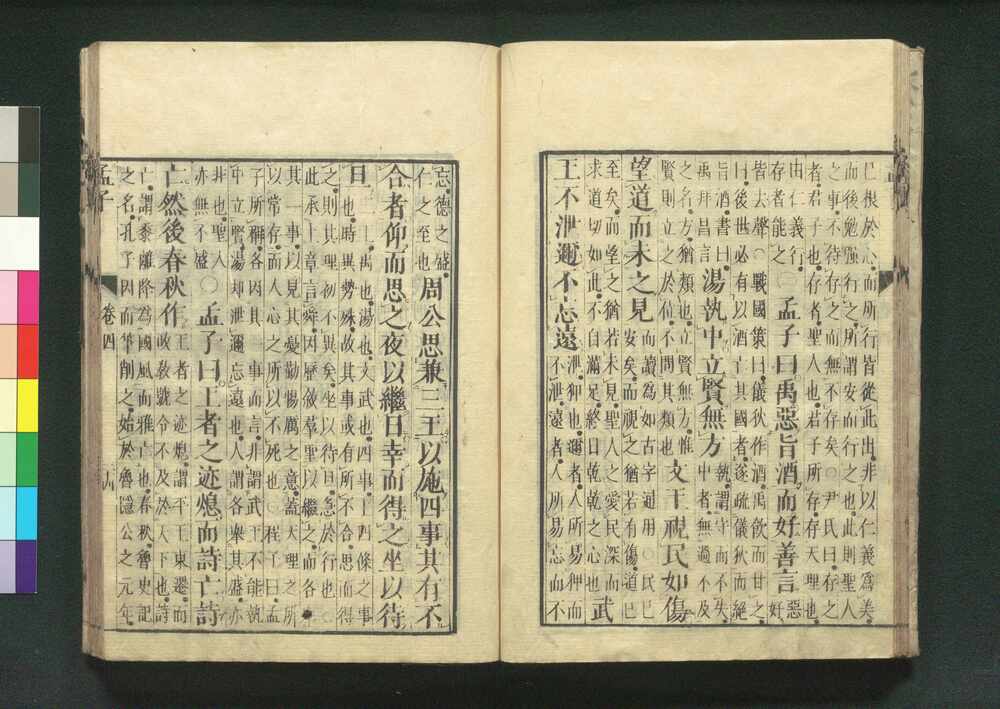 已根於心而所行皆從此出非以仁義爲美
而後勉强行之所謂安而行之也此則聖人
之事不待存之而無不存矣○尹氏曰存之
者君子也存者聖人也君子所存存天理也
由仁義行
存者能之
○孟子曰禹惡旨酒而好善言
惡好
皆去聲○戰國策曰儀狄作酒禹飮而甘之
曰後世必有以酒亡其國者遂疏儀狄而絕
旨酒書曰
禹拜昌言
湯執中立賢無方
執謂守而不失
中者無過不及
之名方猶類也立賢無方惟
賢則立之於位不問其類也
文王視民如傷
望道而未之見
而讀爲如古字通用○民已
安矣而視之猶若有傷道已
至矣而望之猶若未見聖人之愛民深而
求道切如此不自滿足終日乾乾之心也
武
王不泄邇不忘遠
泄狎也邇者人所易狎而
不泄遠者人所易忘而不
忘德之盛
仁之至也
周公思兼三王以施四事其有不
合者仰而思之夜以繼日幸而得之坐以待
旦
三王禹也湯也文武也四事上四條之事
也時異勢殊故其事或有所不合思而得
之則其理初不異矣坐以待旦急於行也○
此承上章言舜因歷敘羣聖以繼之而各
其一事以見其憂勤惕厲之意蓋天理之所
以常存而人心之所以不死也○程子曰孟
子所稱各因其一事而言非謂武王不能執
中立賢湯却泄邇忘遠也人謂各舉其盛亦
非也聖人
亦無不盛
○孟子曰王者之迹熄而詩亡詩
亡然後春秋作
王者之迹熄謂平王東遷而
政敎號令不及於天下也詩
亡謂黍離降爲國風而雅亡也春秋魯史記
之名孔子因而筆削之始於魯隱公之元年
孟子 卷四